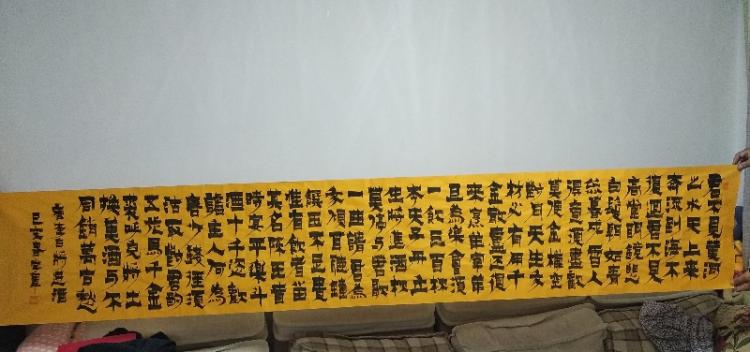 君不見黃河
之水天上來
奔流到海不
復迴君不見
高堂明鏡悲
白髮朝如青
絲暮成雪人
生得意須盡歡
莫使金樽空
對月天生我
材必有用千
金散盡還復
來烹羊宰牛
且為樂會須
一飲三百杯
岑夫子丹丘
生將進酒杯
莫停與君歌
一曲請君為
我傾耳聽鐘
饌玉不足貴
惟有飲者留
其名陳王昔
時宴平樂斗
酒十千恣歡
謔主人何為
言少錢徑須
沽取對君酌
五花馬千金
裘呼兒將出
換美酒與爾
同銷萬古愁
唐李白將進酒
己亥春